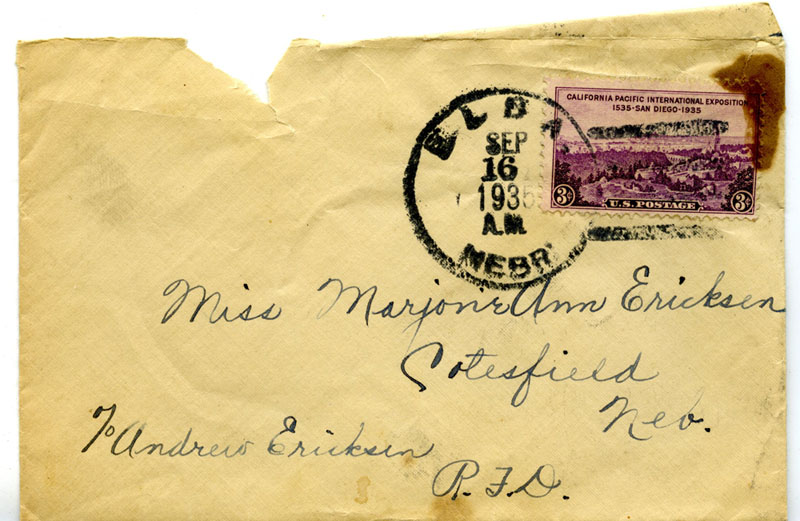 ELBA
SEP
16
1935
A.M.
NEBR
CALIFORNIA PACIFIC INTERNATIONAL EXPOSITION
1535-SAN DIEGO-1935
3¢ U.S. POSTAGE 3¢
Miss Marjorie Ann Ericksen
Cotesfield
Neb.
℅ Andrew Ericksen
R.F.D.